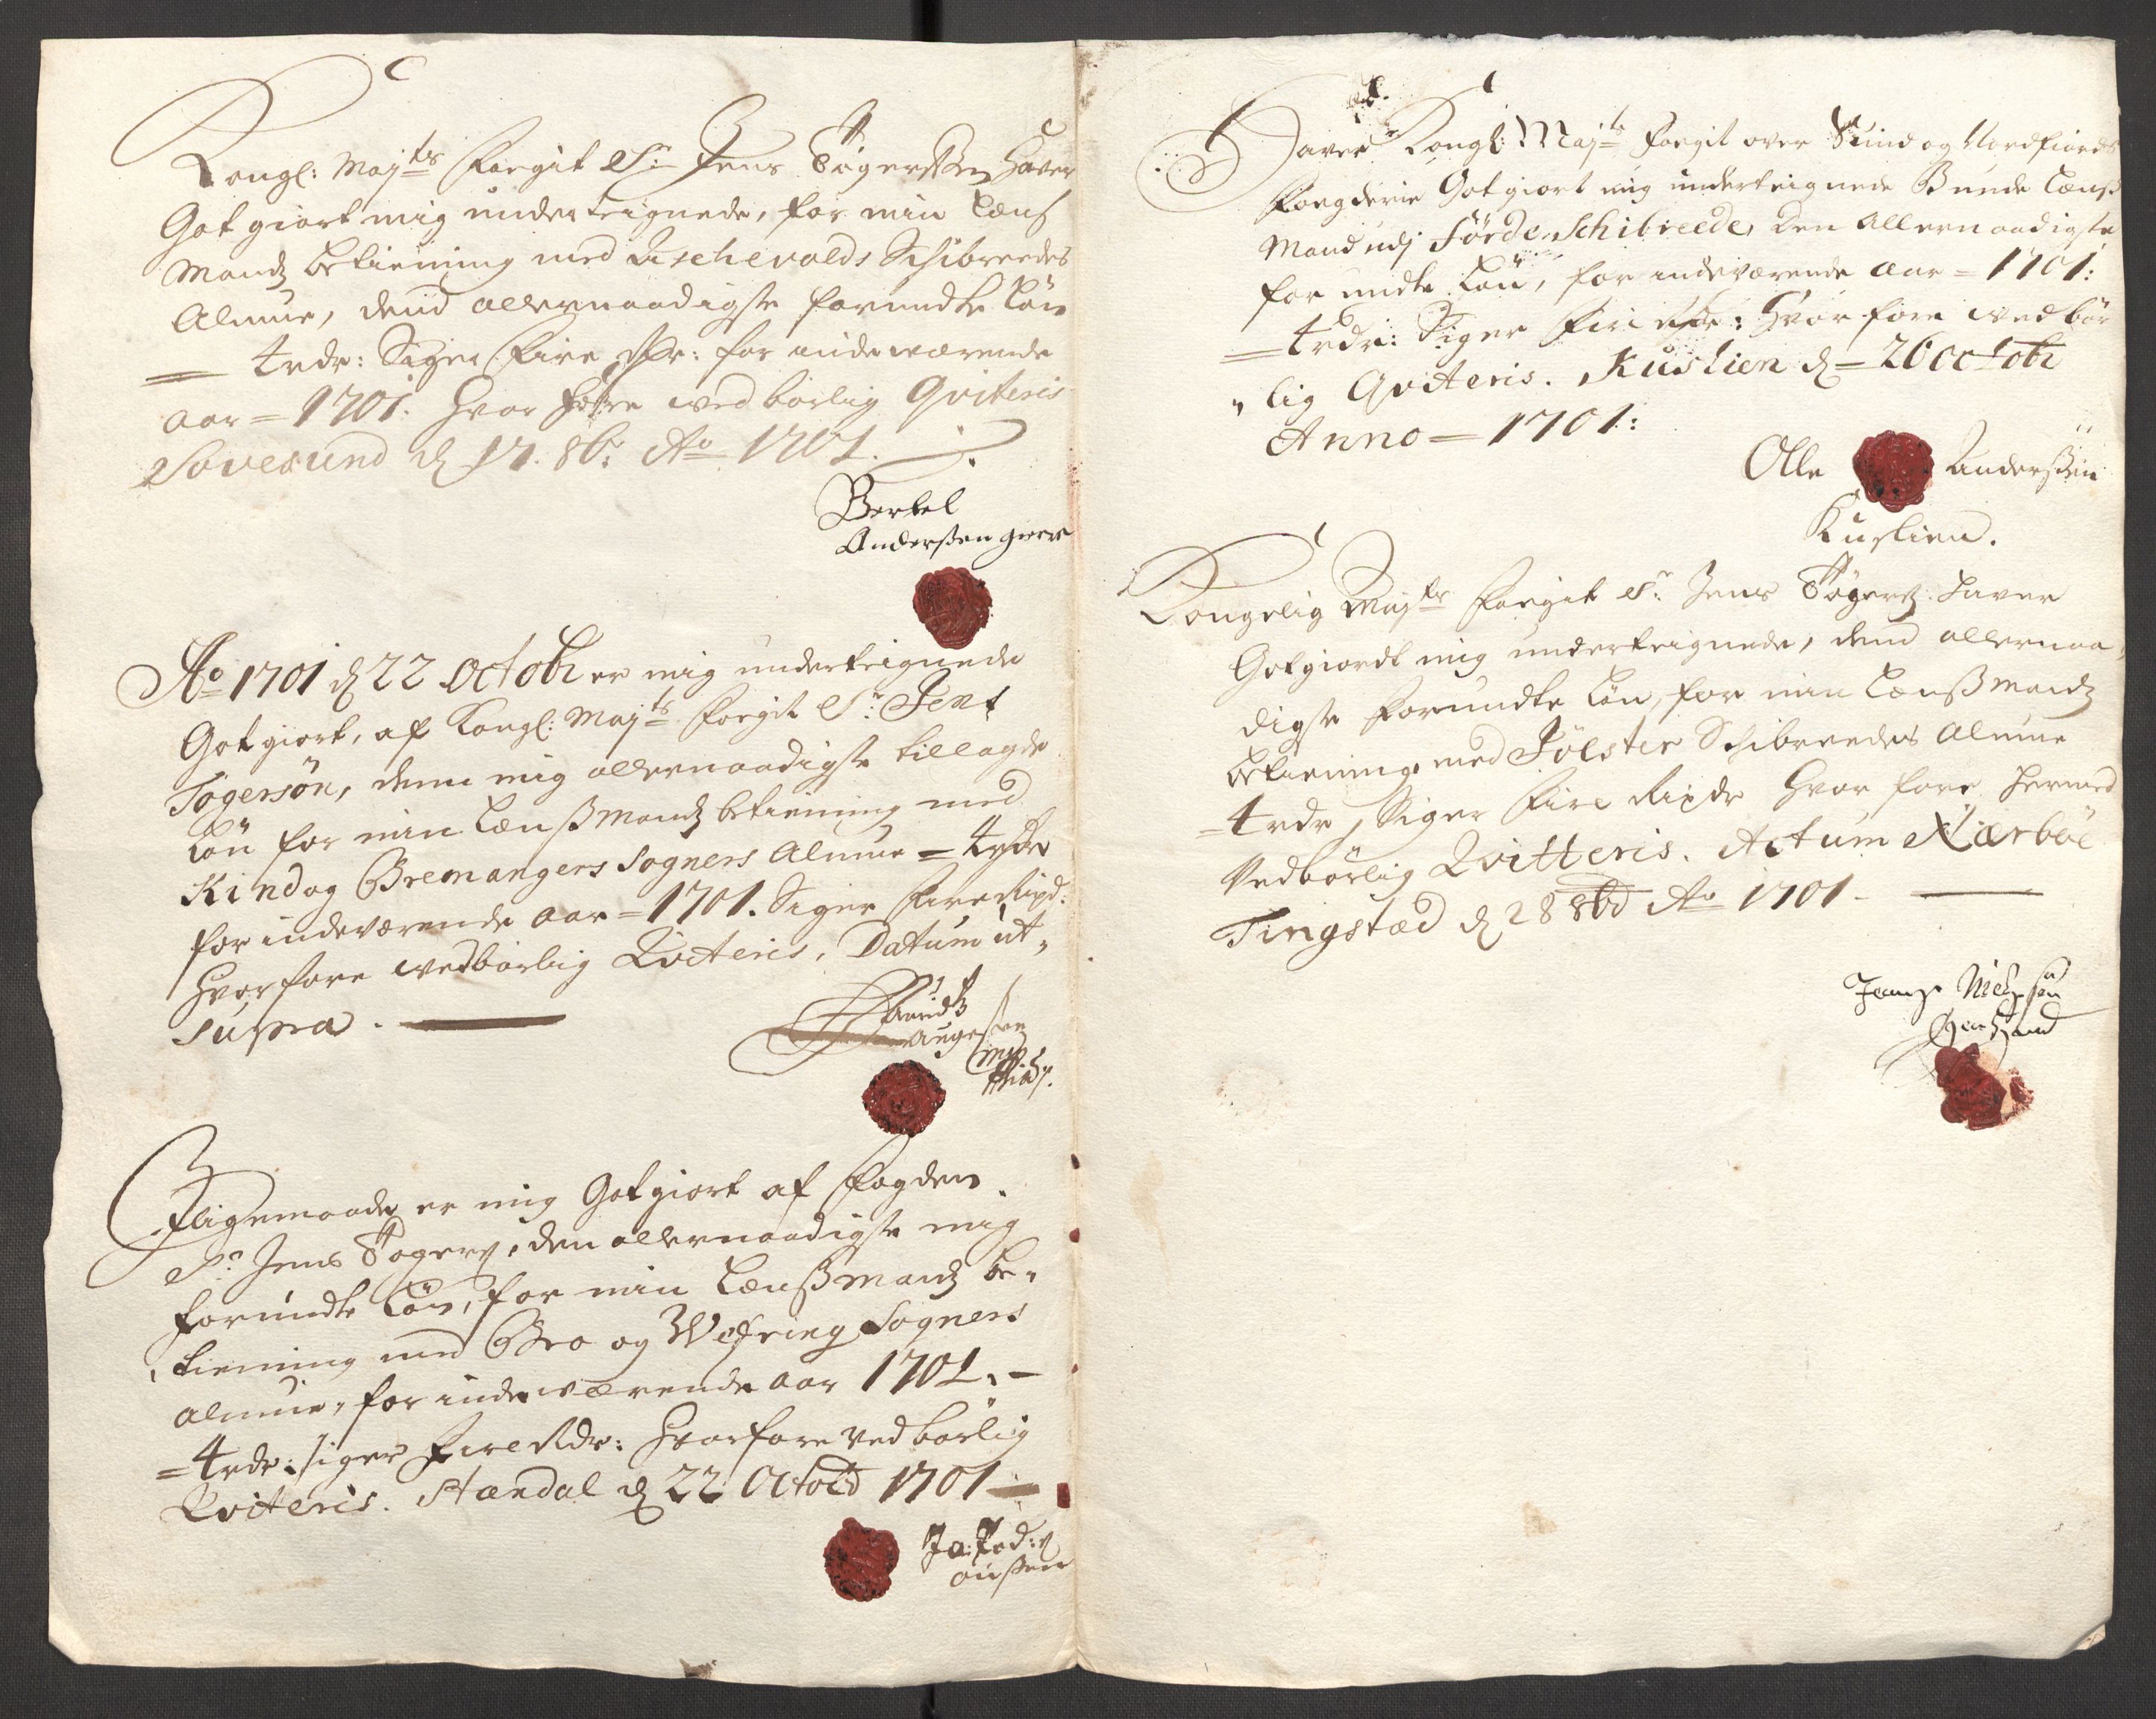 Kongl: Maÿts Foegit Sr Jens Tøgerssen Hawer
Got giort mig underteignede, for min Lens
Mandz betiening med Aschevolds Schibreedes
Almue, dend allernaadigste forundte Løn
= 4 rdr: Siger Fire rdr: for indeværende
aar = 1701: Hvor fore ved børlig Qviteris
Sovesund d 17. 8br: Ao 1701.
Bertel
Anderssen
Ao 1701 d 22 Octobr er mig underteignede
Got giort, af Kongl: Maÿts Foegit Sr: Jens
Tøgersøn, denn mig allernaadigste tillagde
Løn for min Lenssmandz betiening med
Kind og Bremangers Sogners Almue = 4 rdr
for indeværende aar = 1701. Siger Fire Rixd:
Hvorfore vedbørlig Qviteris, Datum ut-
Supra.
J ligemaade er mig Got giort af Fogden
Sr Jens Tøgers, den allernaadigste mig
forundte Løn, for min Lenssmandz be-
tiening med Bro og Wefring Sogners
Almue, for indeværende aar 1701. -
= 4 rdr: siger Fire Rdr: Hvorfore ved børlig
Qviteris. Standal d 22 Octobr 1701
Haver Kongl: Maÿts Foegit over Sund og Nordfiords
Foegderie Got giort mig underteignede Bunde Lenss
Mand udj Førde Schibreede, den allernaadigste
for undte Løn, for indeværende aar = 1701:
= 4 rdr: Siger Fire rdr: Hvor fore ved bør
lig Qviteris. Kuslien d = 26 octobr
Anno = 1701:
Olle Anderssen
Kuslien.
Kongelig Maÿts Foegit Sr: Jens Tøgers Haver
Gotgiordt mig underteignede, dend allernaa-
digste forundte Løn, for min Lenssmandz
betiening med Jølster Schibreedes Almue
= 4 rdr, Siger Fire Rixdr Hvor fore hermed
Vedbørlig Qvitteris. Actum Kierbøe
Tingstæd d 28 8bd Ao 1701 -